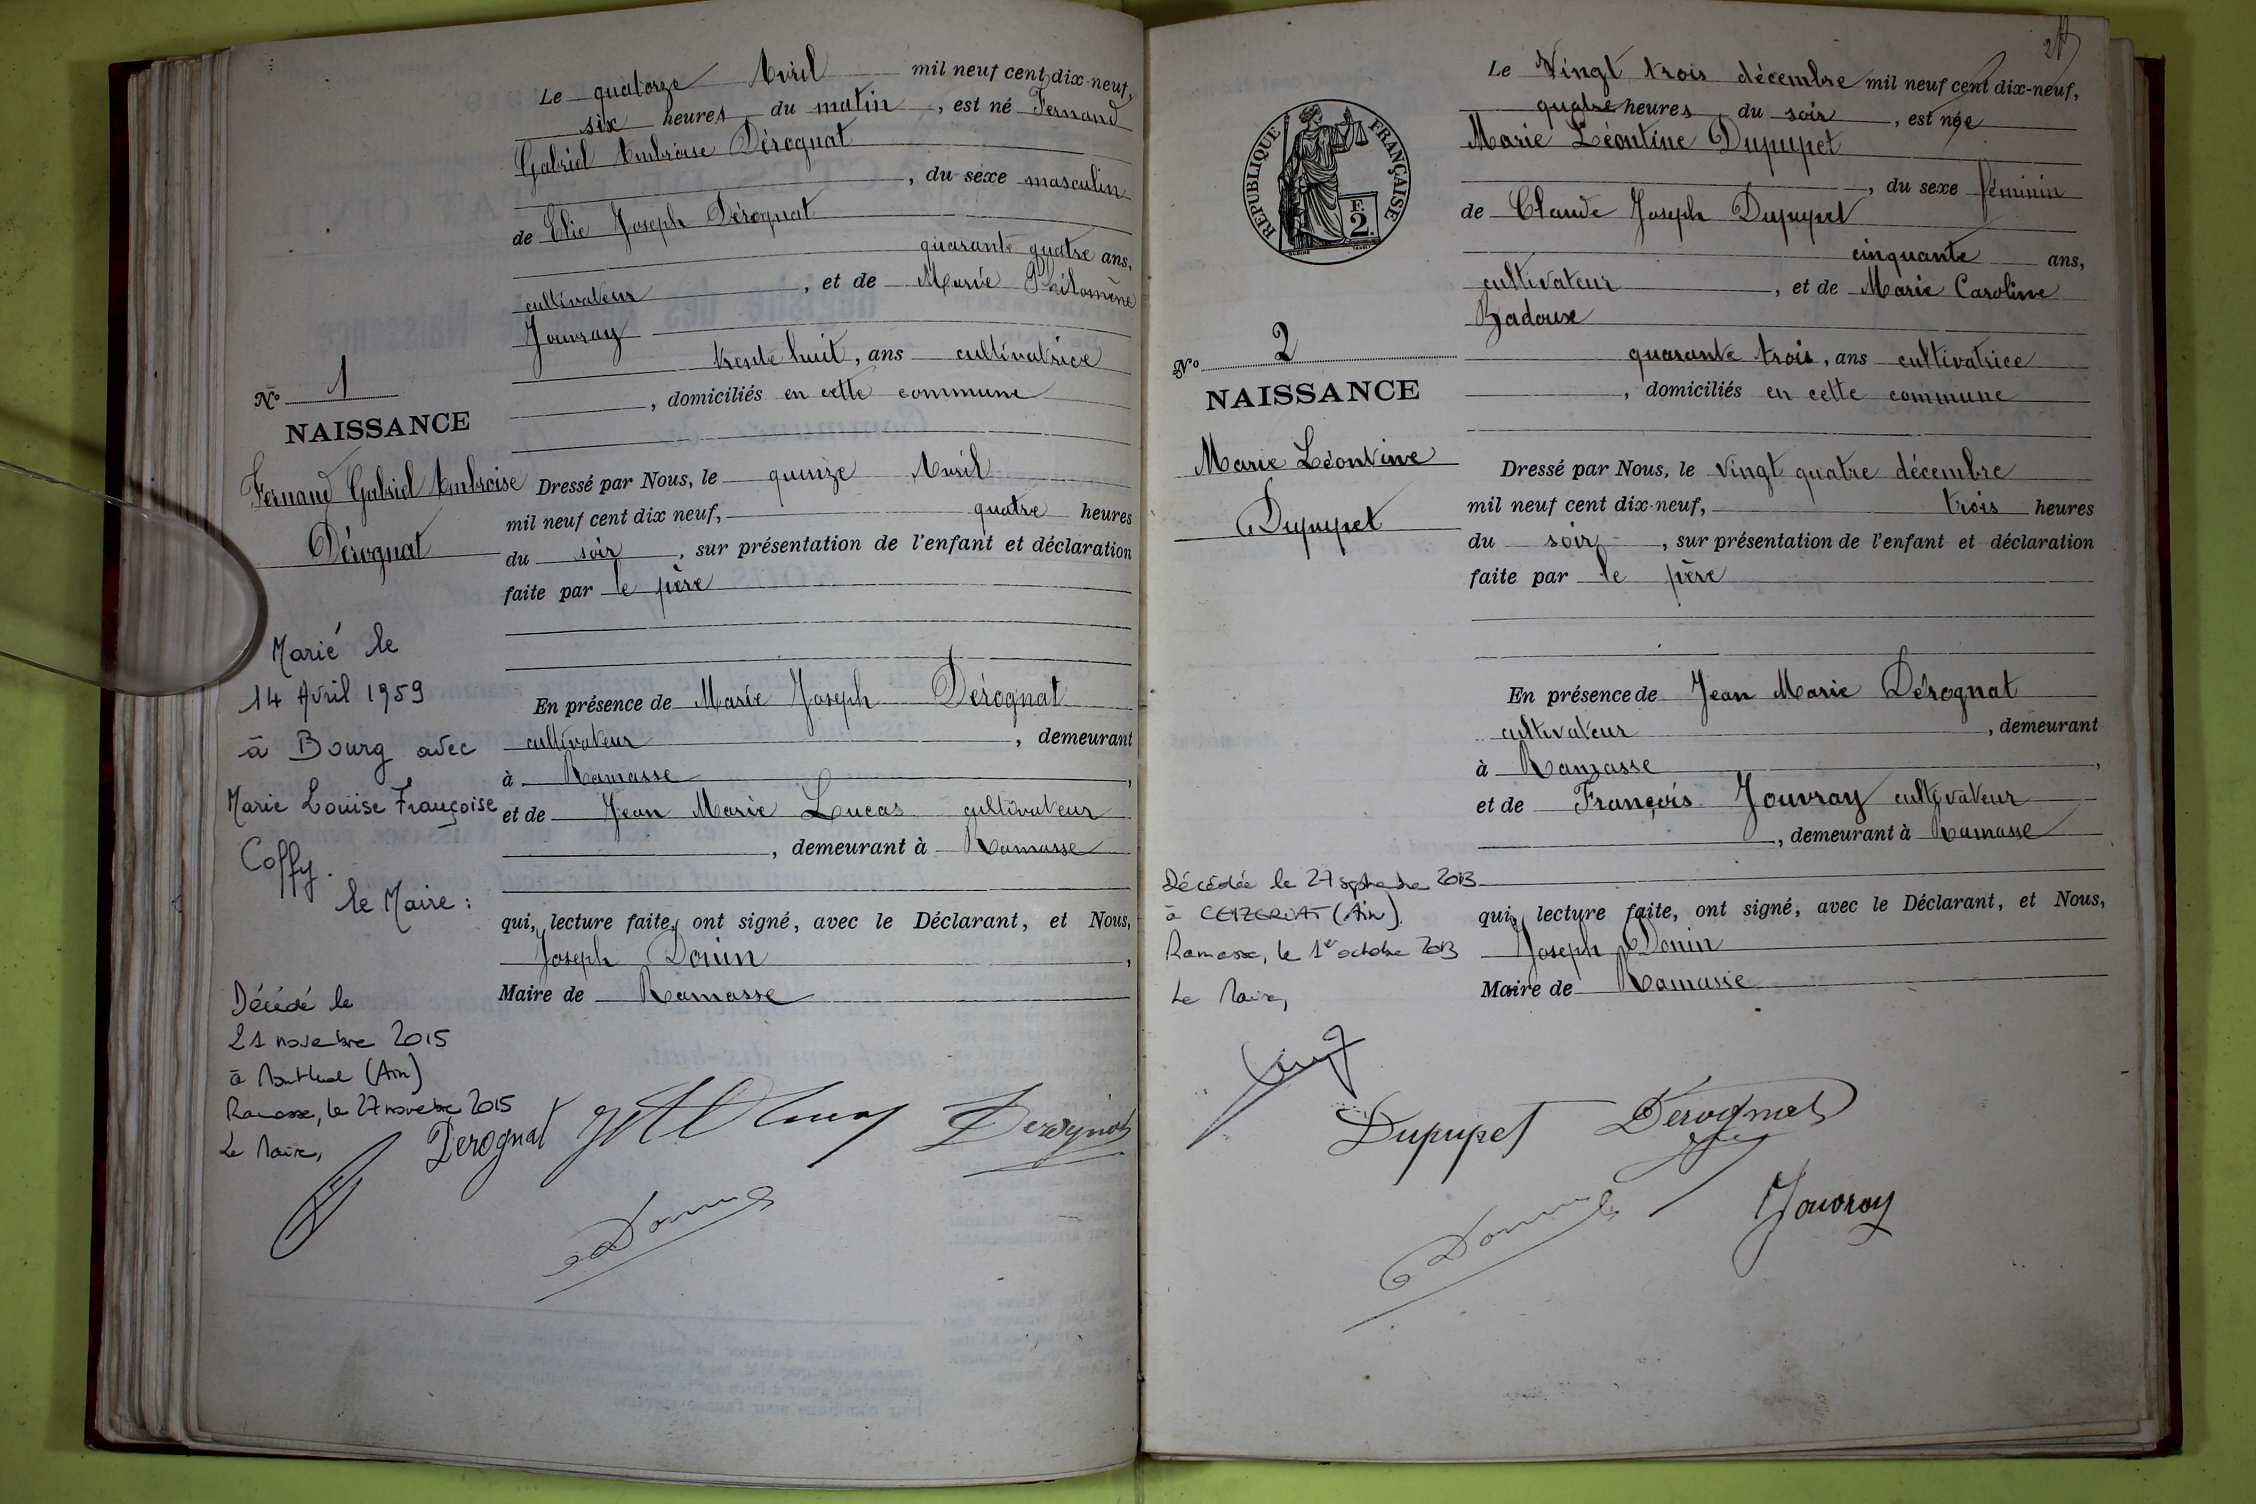 Le quatorze Avril mil neuf cent dix-neuf,
six heures du matin, est né Fernand
Gabriel Ambroise Dérognat
, du sexe masculin
de Elie Joseph Dérognat
quarante quatre ans,
cultivateur, et de Marie Philomène
Jouvray
trente huit, ans cultivatrice
, domiciliés en cette commune
No 1
NAISSANCE
Fernand Gabriel Ambroise
Dérognat
Dressé par Nous, le quinze Avril
mil neuf cent dix neuf, quatre heures
du soir, sur présentation de l'enfant et déclaration
faite par le père
Marié le
14 Avril 1959
à Bourg avec
Marie Louise Françoise
Coffy.
le Maire :
En présence de Marie Joseph Dérognat
cultivateur, demeurant
à Ramasse,
et de Jean Marie Lucas cultivateur
, demeurant à Ramasse
qui, lecture faite, ont signé, avec le Déclarant, et Nous,
Joseph Donin,
Maire de Ramasse
Décédé le
21 novembre 2015
à Montluel (Ain)
Ramasse, le 27 novembre 2015
Le Maire,
Derognat
Derognat
24
Le Vingt trois décembre mil neuf cent dix-neuf,
quatre heures du soir, est née
Marie Léontine Dupupet
, du sexe féminin
de Claude Joseph Dupupet
cinquante ans,
cultivateur, et de Marie Caroline
Badoux
quarante trois, ans cultivatrice
, domiciliés en cette commune
REPUBLIQUE FRANÇAISE
2F.
No 2
NAISSANCE
Marie Léontine
Dupupet
Dressé par Nous, le vingt quatre décembre
mil neuf cent dix-neuf, trois heures
du soir, sur présentation de l'enfant et déclaration
faite par le père
En présence de Jean Marie Dérognat
cultivateur, demeurant
à Ramasse,
et de François Jouvray cultivateur
, demeurant à Ramasse
qui, lecture faite, ont signé, avec le Déclarant, et Nous,
Joseph Donin
Maire de Ramasse
Décédée le 27 septembre 2013
à CEYZERIAT (Ain).
Ramasse, le 1er octobre 2013
Le Maire,
Dupupet
Derognat
Jouvray